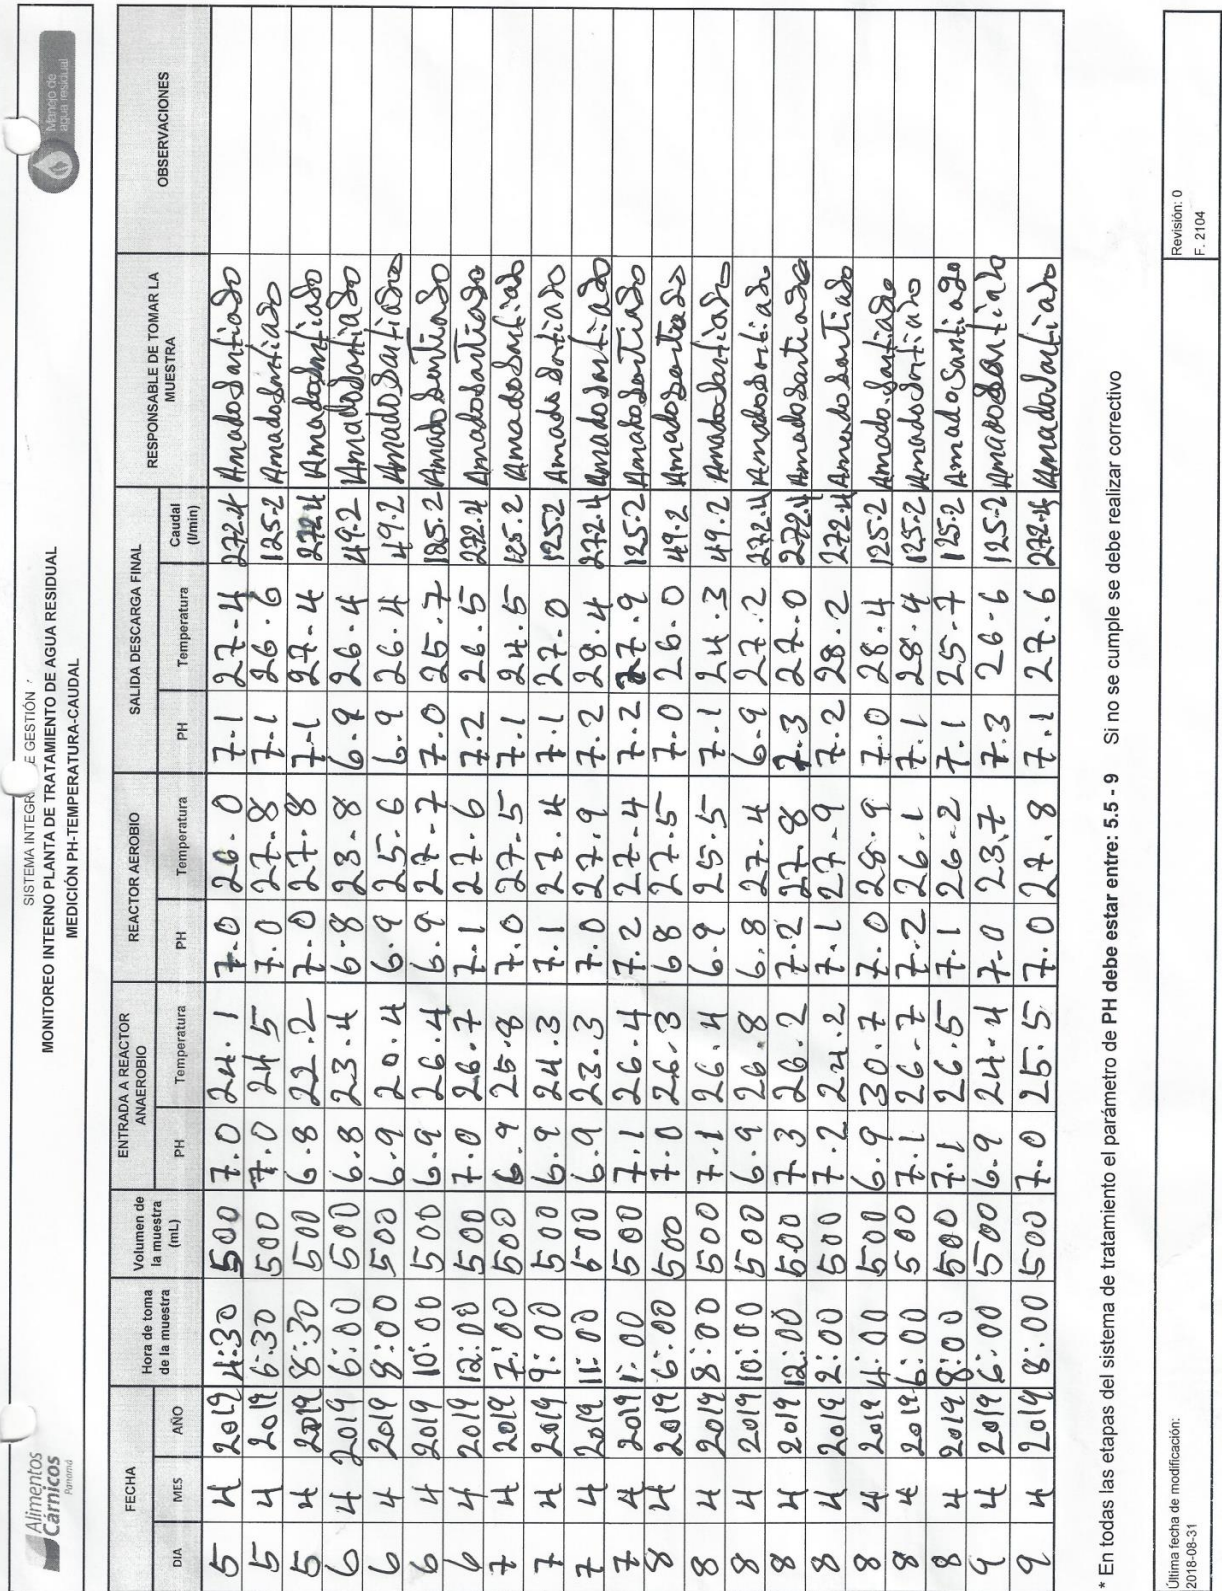 Alimentos
Cárnicos
Panamá
SISTEMA INTEGR E GESTIÓN
MONITOREO INTERNO PLANTA DE TRATAMIENTO DE AGUA RESIDUAL
MEDICIÓN PH-TEMPERATURA-CAUDAL
Manejo de
agua residual
FECHA Hora de toma de la muestra Volumen de la muestra (mL) ENTRADA A REACTOR ANAEROBIO REACTOR AEROBIO SALIDA DESCARGA FINAL RESPONSABLE DE TOMAR LA MUESTRA OBSERVACIONES
DIA MES AÑO PH Temperatura PH Temperatura PH Temperatura Caudal (l/min)
5 4 2019 4:30 500 7.0 24.1 7.0 26.0 7.1 27.4 272.4 Amado Santiado
5 4 2019 6:30 500 7.0 24.5 7.0 27.8 7.1 26.6 125.2 Amado Santiado
5 4 2019 8:30 500 6.8 22.2 7.0 27.8 7.1 27.4 272.4 Amado Santiado
6 4 2019 6:00 500 6.8 23.4 6.8 23.8 6.9 26.4 49.2 Amado Santiado
6 4 2019 8:00 500 6.9 20.4 6.9 25.6 6.9 26.4 49.2 Amado Santiado
6 4 2019 10:00 500 6.9 26.4 6.9 27.7 7.0 25.7 125.2 Amado Santiado
6 4 2019 12:00 500 7.0 26.7 7.1 27.6 7.2 26.5 272.4 Amado Santiado
7 4 2019 7:00 500 6.9 25.8 7.0 27.5 7.1 24.5 125.2 Amado Santiado
7 4 2019 9:00 500 6.9 24.3 7.1 27.4 7.1 27.0 125.2 Amado Santiado
7 4 2019 11:00 500 6.9 23.3 7.0 27.9 7.2 28.4 272.4 Amado Santiado
7 4 2019 1:00 500 7.1 26.4 7.2 27.4 7.2 27.9 125.2 Amado Santiado
8 4 2019 6:00 500 7.0 26.3 6.8 27.5 7.0 26.0 49.2 Amado Santiado
8 4 2019 8:00 500 7.1 26.4 6.9 25.5 7.1 24.3 49.2 Amado Santiado
8 4 2019 10:00 500 6.9 26.8 6.8 27.4 6.9 27.2 272.4 Amado Santiado
8 4 2019 12:00 500 7.3 26.2 7.2 27.8 7.3 27.0 272.4 Amado Santiado
8 4 2019 2:00 500 7.2 24.2 7.1 27.9 7.2 28.2 272.4 Amado Santiado
8 4 2019 4:00 500 6.9 30.7 7.0 28.9 7.0 28.4 125.2 Amado Santiado
8 4 2019 6:00 500 7.1 26.7 7.2 26.1 7.1 28.4 125.2 Amado Santiado
8 4 2019 8:00 500 7.1 26.5 7.1 26.2 7.1 25.7 125.2 Amado Santiago
9 4 2019 6:00 500 6.9 24.4 7.0 23.7 7.3 26.6 125.2 Amado Santiado
9 4 2019 8:00 500 7.0 25.5 7.0 27.8 7.1 27.6 272.4 Amado Santiado
* En todas las etapas del sistema de tratamiento el parámetro de PH debe estar entre: 5.5 - 9 Si no se cumple se debe realizar correctivo
Última fecha de modificación:
2018-08-31
Revisión: 0
F. 2104